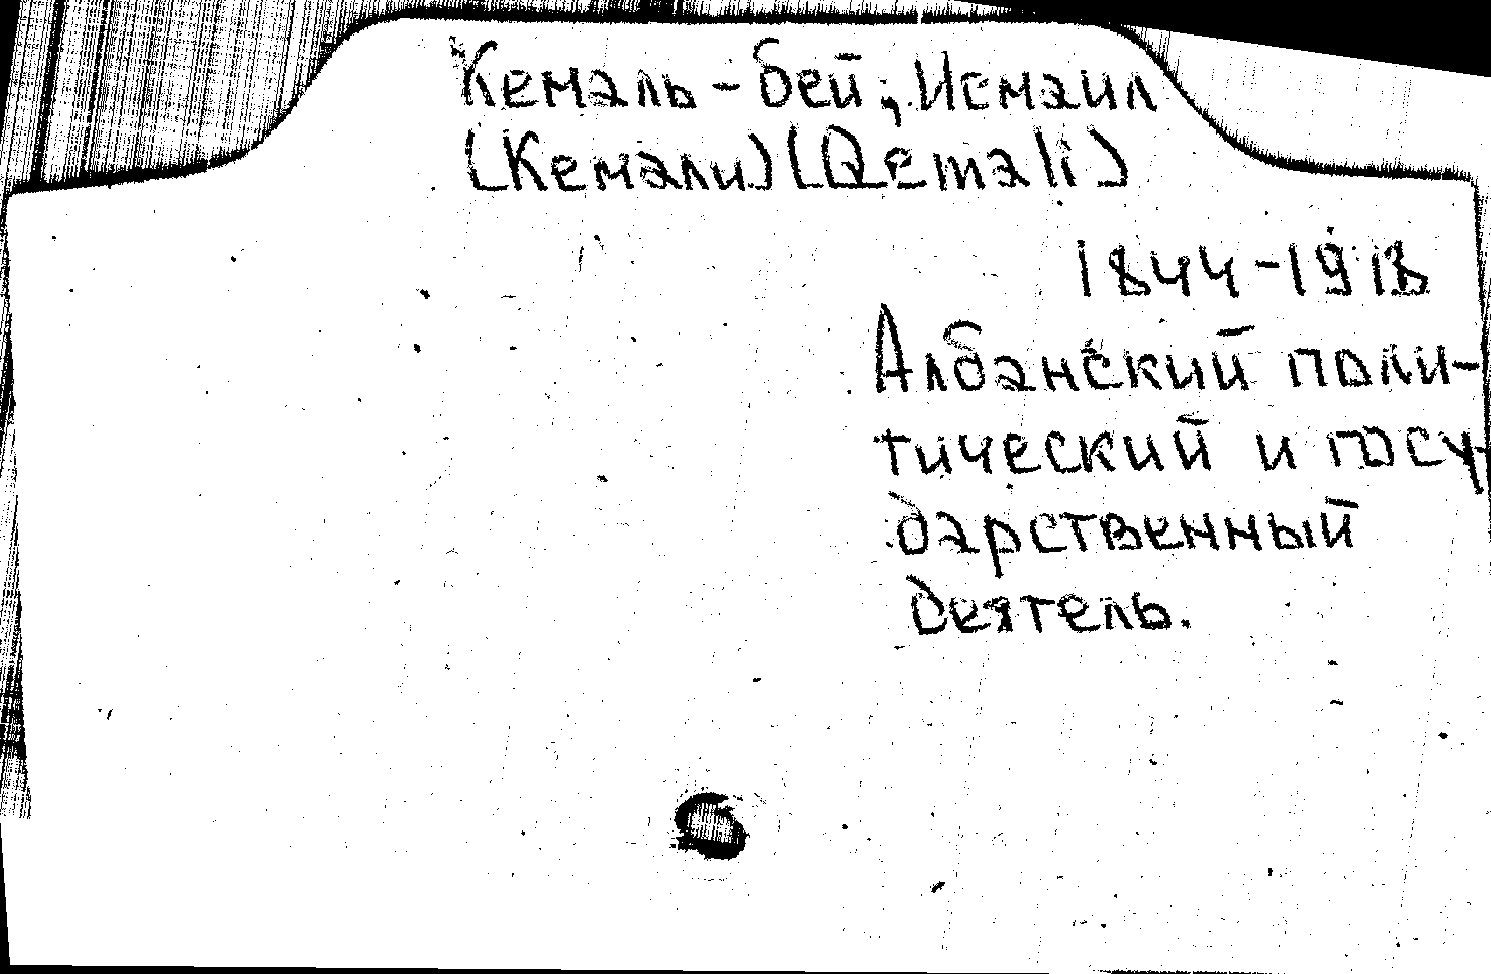 Кемаль-бей, Исмаил
(Кемали) (Qemali)
1844-1918
Албанский поли-
тический и госу-
дарственный
деятель.